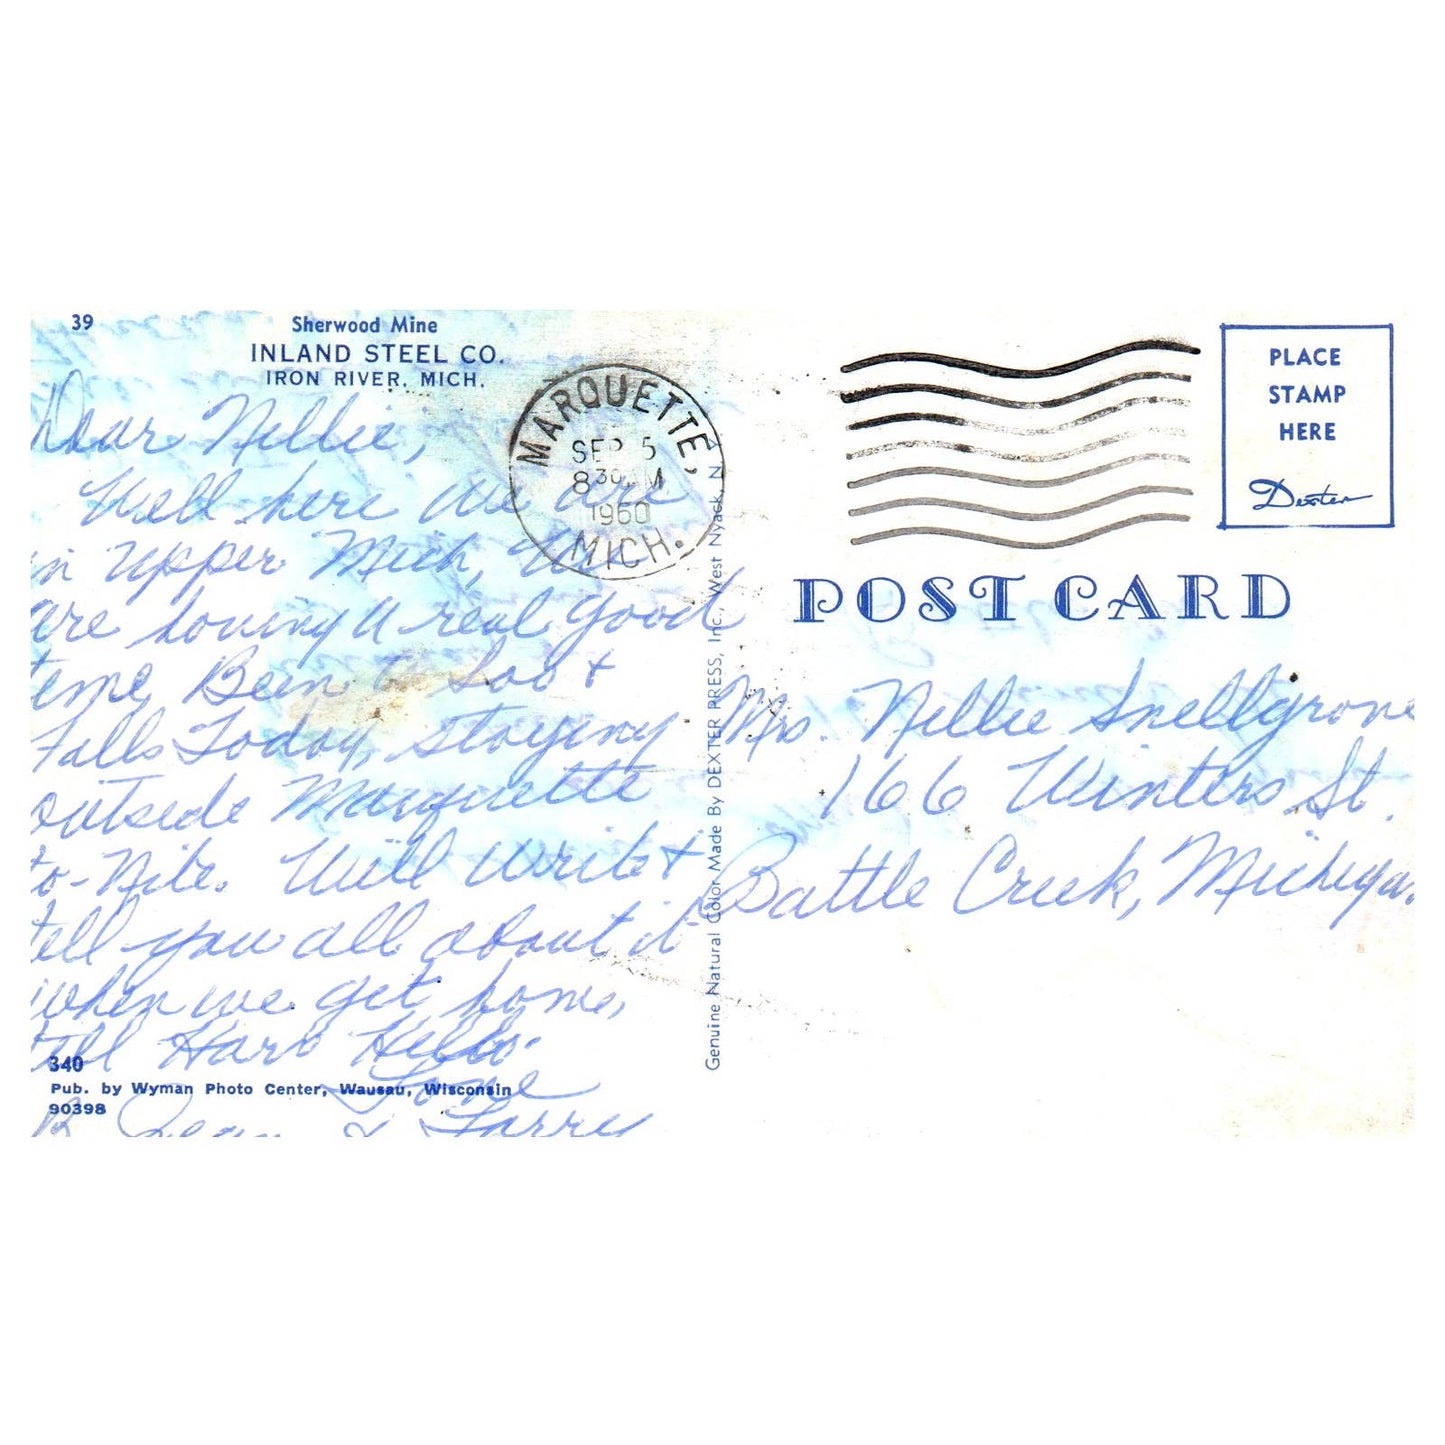 39
Sherwood Mine
INLAND STEEL CO.
IRON RIVER, MICH.
Dear Nellie,
Well here we are
in Upper Mich, We
are having a real good
time, Been to Soo &
Falls Today, staying
outside Marquette
to-Nite. Will write &
tell you all about it
when we get home,
tell Harv Hello.
Love
Jean & Larry
340
Pub. by Wyman Photo Center, Wausau, Wisconsin
90398
MARQUETTE,
SEP 5
8 30 AM
1960
MICH.
Genuine Natural Color Made By DEXTER PRESS, Inc., West Nyack, N.Y.
PLACE
STAMP
HERE
Dexter
POST CARD
Mrs. Nellie Snellgrove
166 Winters St.
Battle Creek, Michigan.